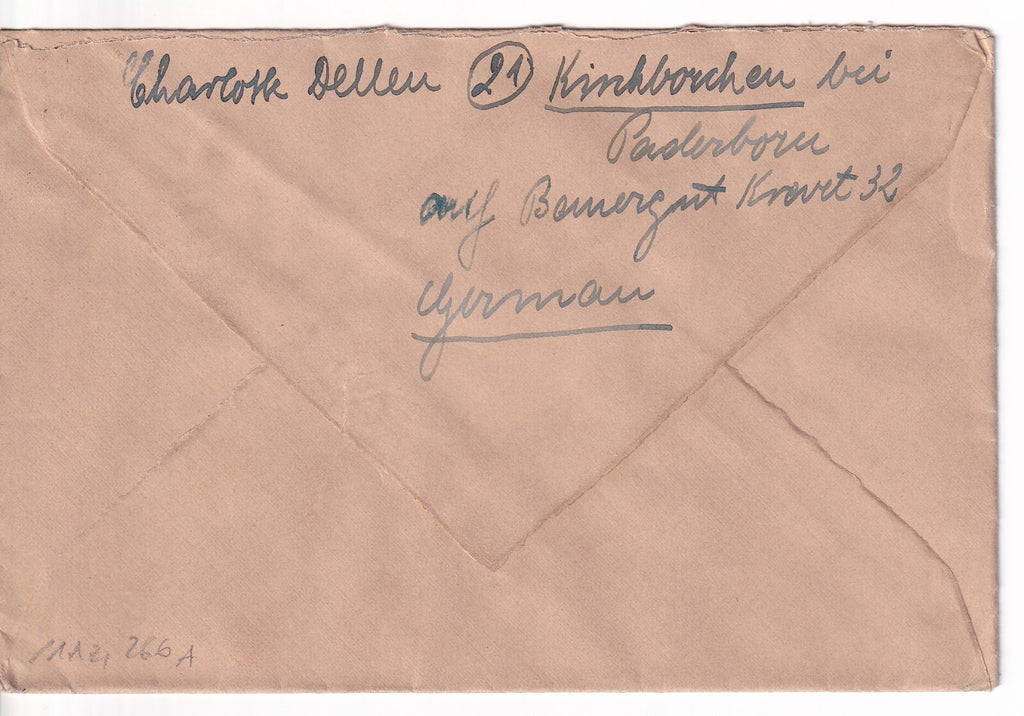 Charlotte Dellen (21) Kirchborchen bei
Paderborn
auf Bauerngut 32
German
266 A